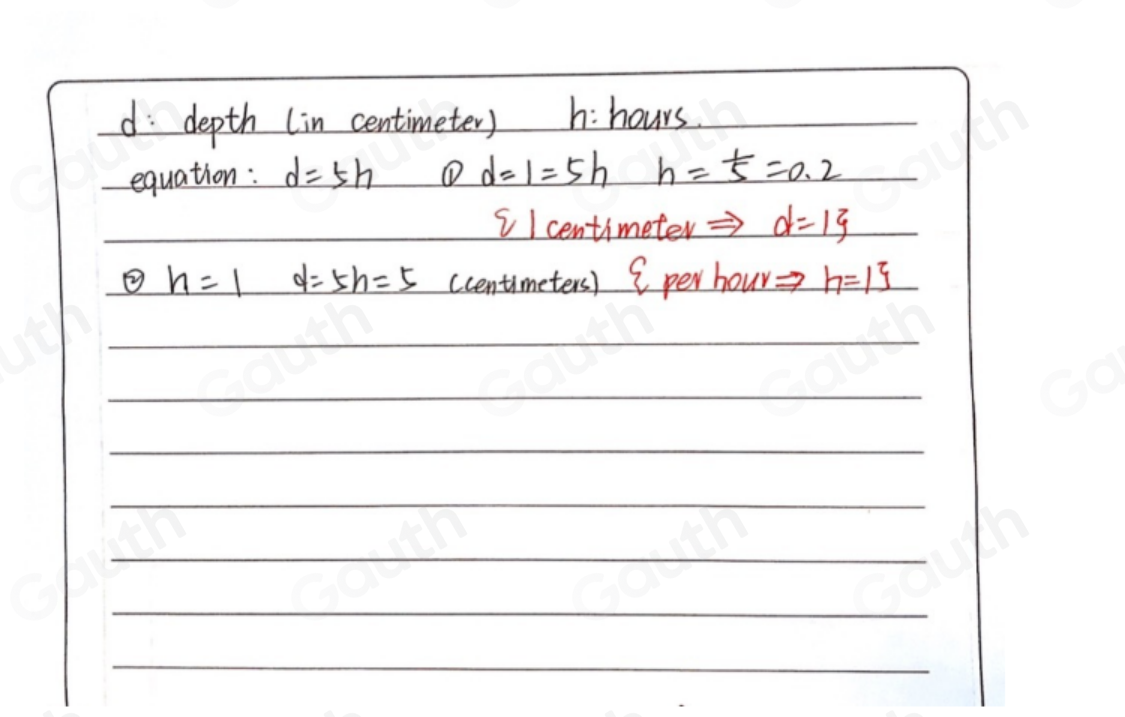 d: depth (in centimeter) h: hours.
equation: d=5h ① d=1=5h h=1/5=0.2
{1 centimeter ⇒ d=1}
② h=1 d=5h=5 (centimeters) {per hour ⇒ h=1}